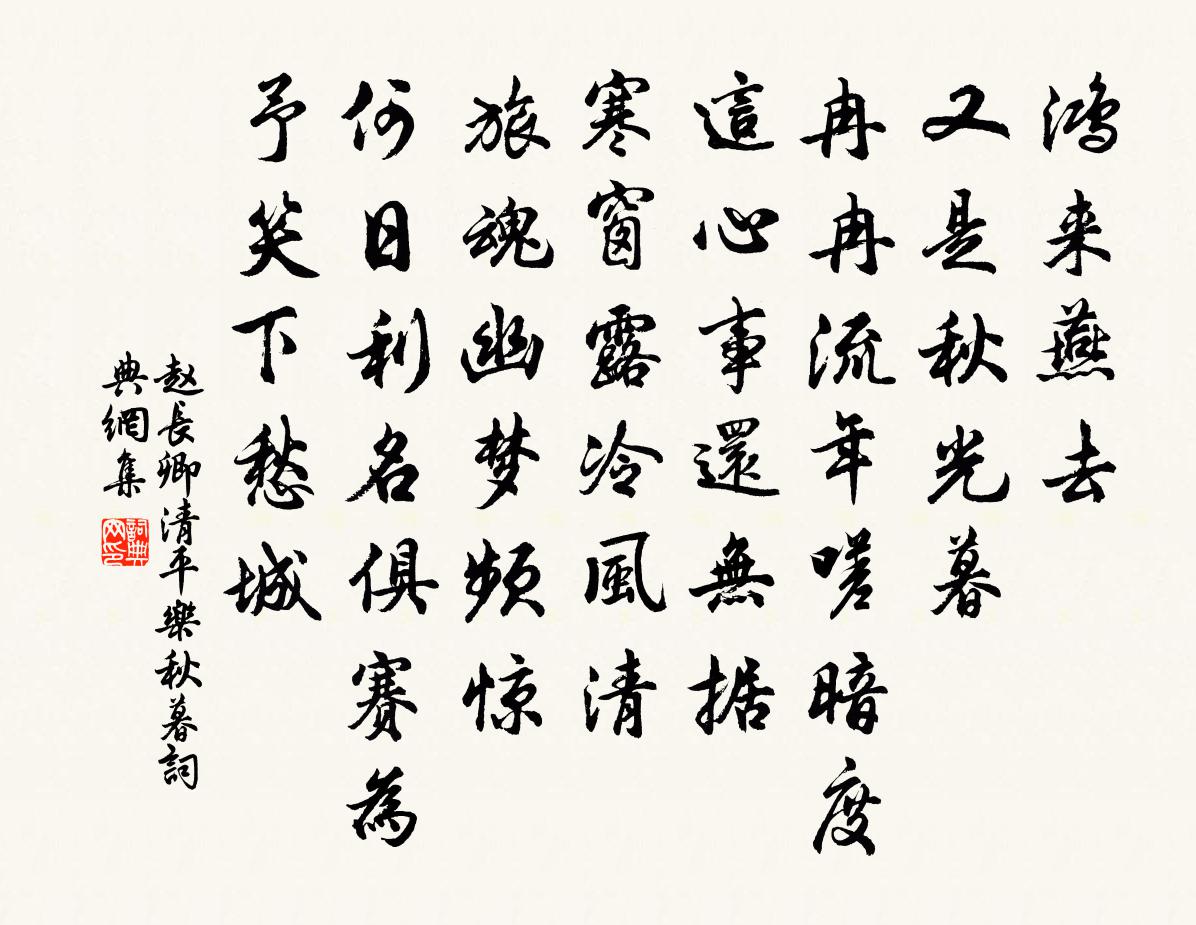 鸿来燕去
又是秋光暮
冉冉流年嗟暗度
這心事還無据
寒窗露冷風清
旅魂幽梦频惊
何日利名俱赛為
予笑下愁城
赵長卿清平樂秋暮詞
典網集
詞典
网印